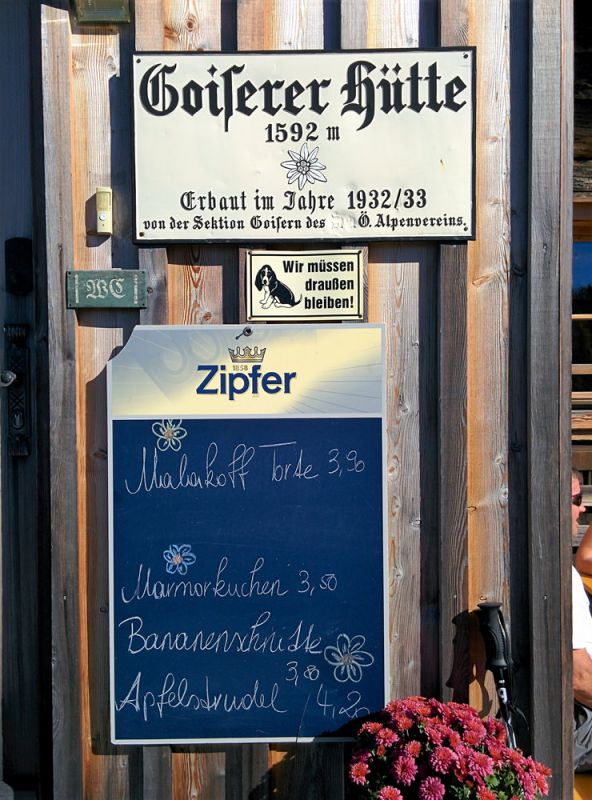 Goiserer Hütte
1592 m
Erbaut im Jahre 1932/33
von der Sektion Goisern des Ö. Alpenvereins.
WC
Wir müssen
draußen
bleiben!
1858
Zipfer
Malakoff Torte 3,90
Marmorkuchen 3,50
Bananenschnitte
3,80
Apfelstrudel 4,20